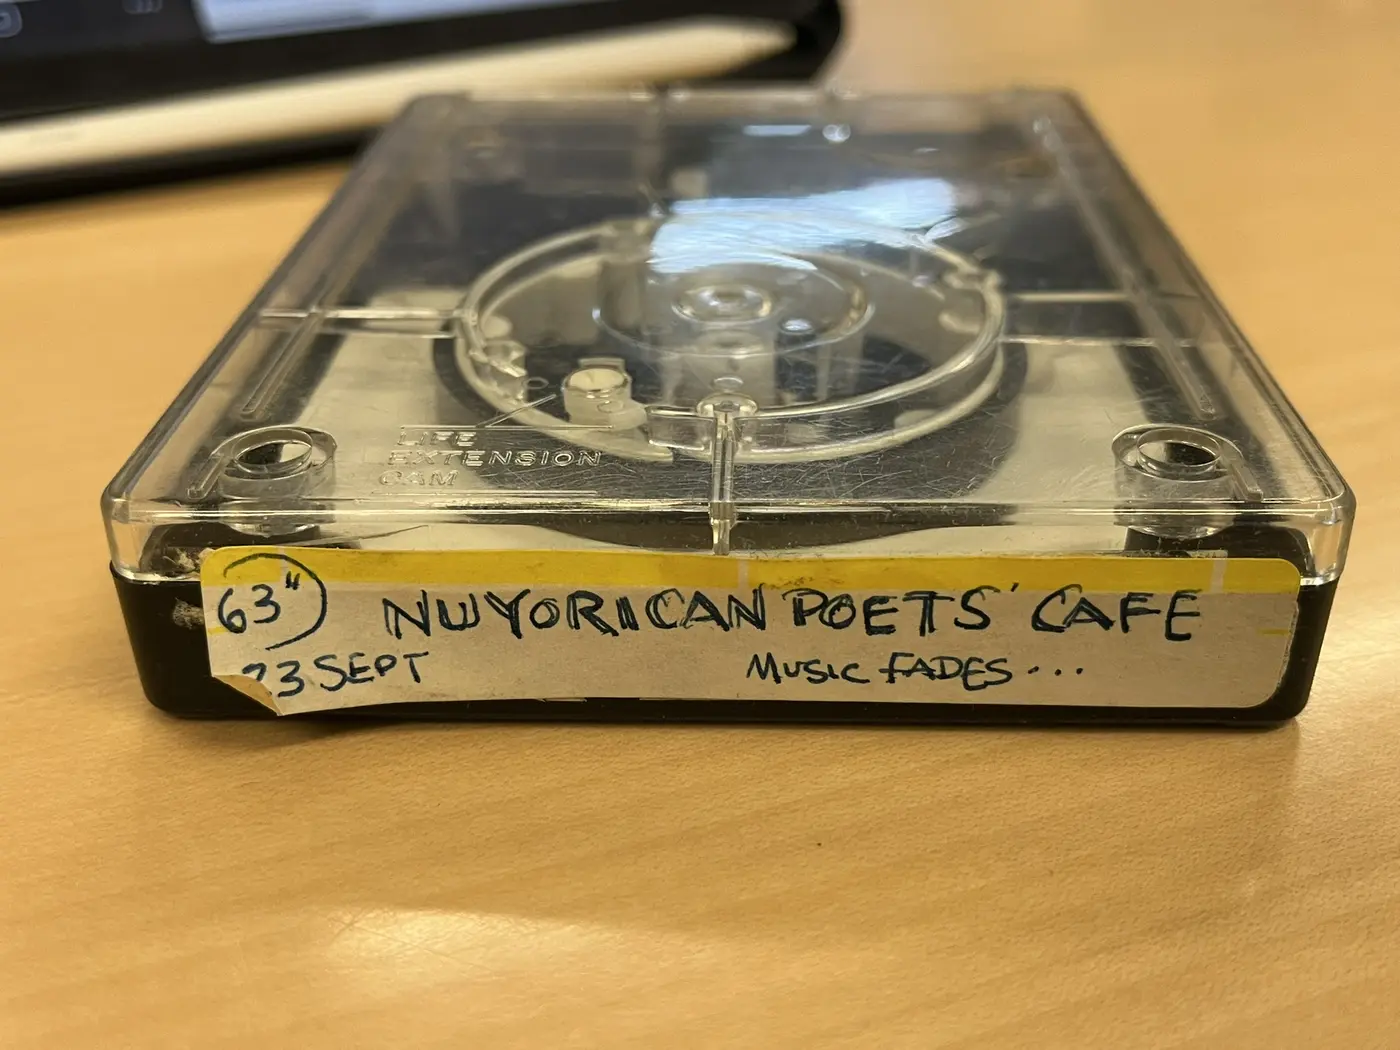 LIFE
EXTENSION
CAM
63" NUYORICAN POETS' CAFE
23 SEPT MUSIC FADES...